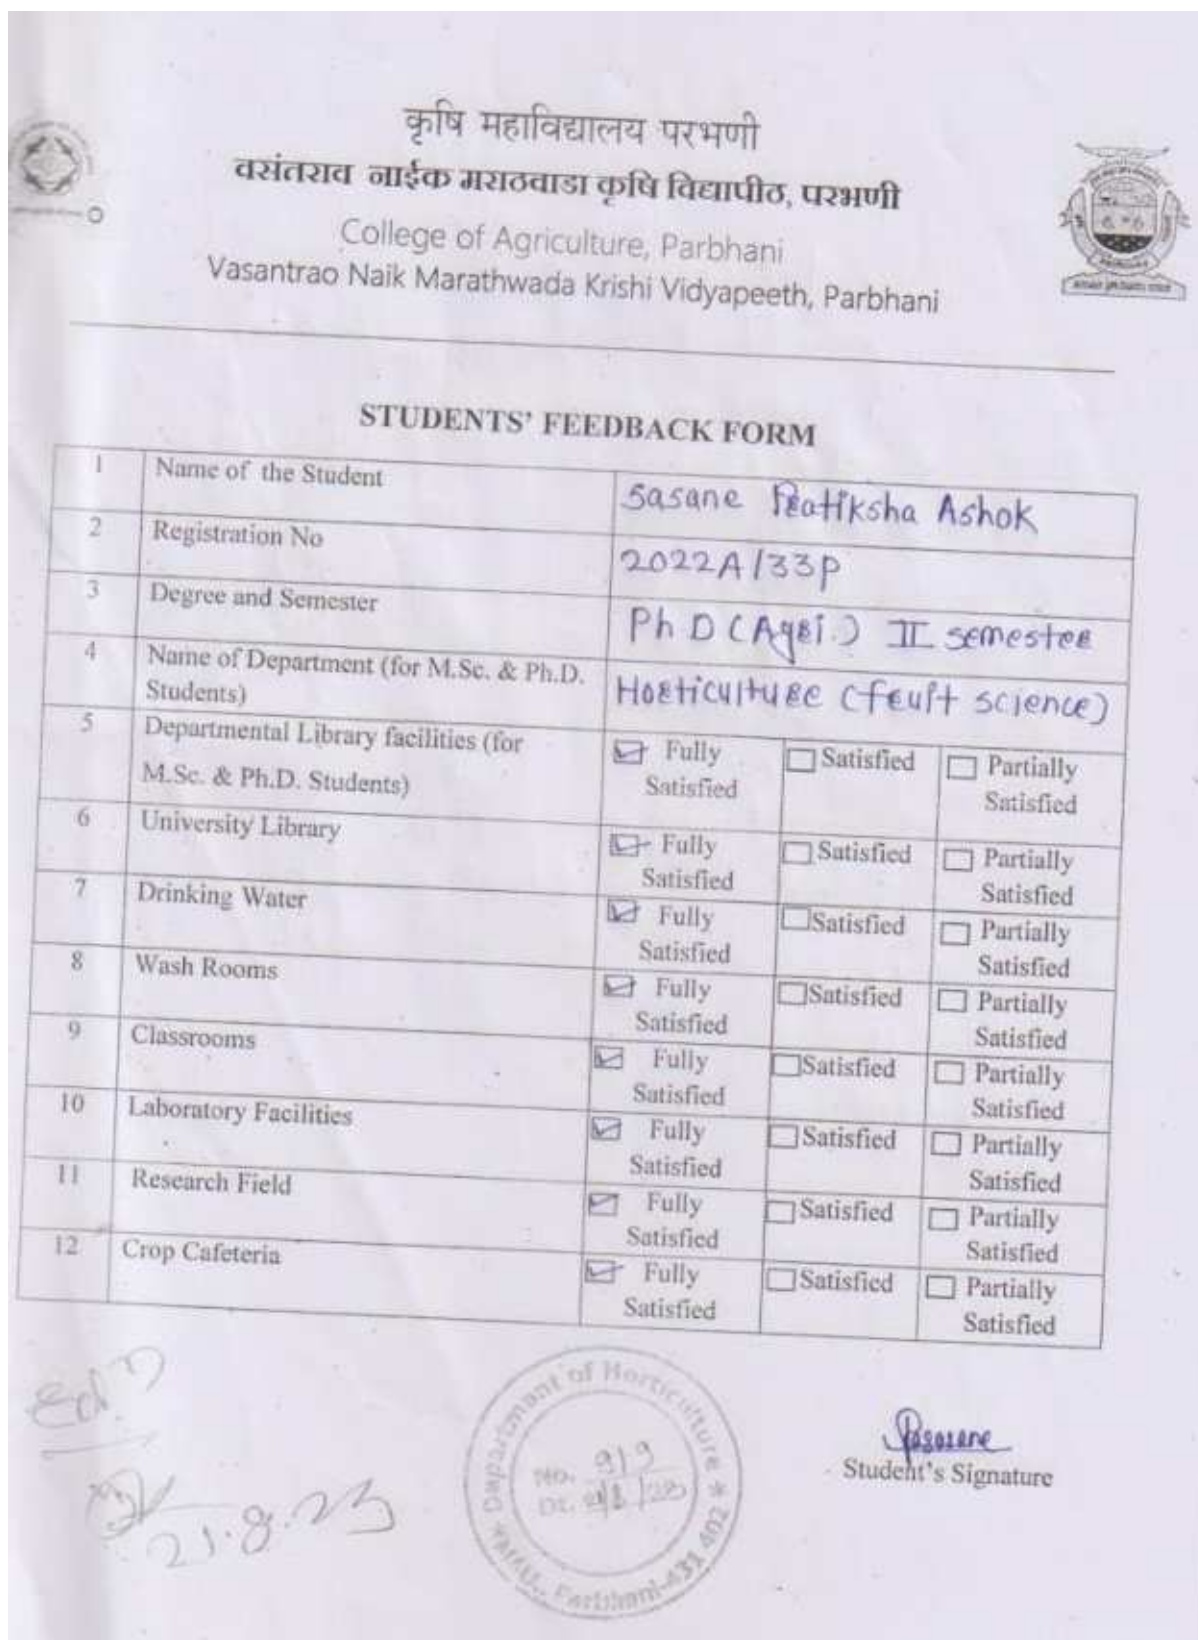 कृषि महाविद्यालय परभणी
वसंतराव नाईक मराठवाडा कृषि विद्यापीठ, परभणी
College of Agriculture, Parbhani
Vasantrao Naik Marathwada Krishi Vidyapeeth, Parbhani
STUDENTS' FEEDBACK FORM
1 Name of the Student Sasane Pratiksha Ashok
2 Registration No 2022A/33P
3 Degree and Semester Ph D (Agri.) II semester
4 Name of Department (for M.Sc. & Ph.D. Students) Horticulture (fruit science)
5 Departmental Library facilities (for M.Sc. & Ph.D. Students) Fully Satisfied Satisfied Partially Satisfied
6 University Library Fully Satisfied Satisfied Partially Satisfied
7 Drinking Water Fully Satisfied Satisfied Partially Satisfied
8 Wash Rooms Fully Satisfied Satisfied Partially Satisfied
9 Classrooms Fully Satisfied Satisfied Partially Satisfied
10 Laboratory Facilities Fully Satisfied Satisfied Partially Satisfied
11 Research Field Fully Satisfied Satisfied Partially Satisfied
12 Crop Cafeteria Fully Satisfied Satisfied Partially Satisfied
Department of Horticulture
No. 919
Dt.
VNMKV, Parbhani-431 402
21.8.23
Psasane
Student's Signature